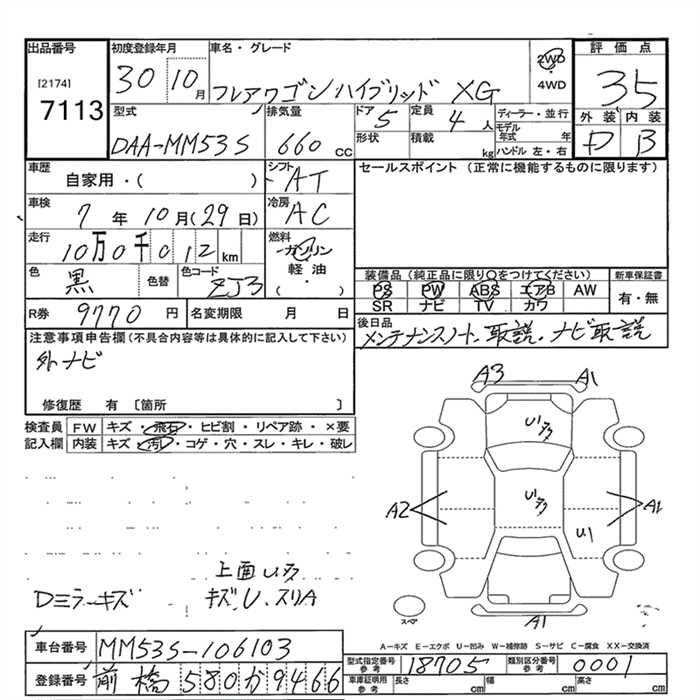 出品番号 初度登録年月 車名・グレード 評価点
[2174] 7113 30 10月 フレアワゴンハイブリッド XG 2WD ・ 4WD 35
外装 内装
D B
型式 排気量 ドア 定員 ディーラー・並行
DAA-MM53S 660cc 5 4人 モデル年式 年
形状 積載 kg ハンドル 左・右
車歴 シフト セールスポイント (正常に機能するものに限ります)
自家用・( ) AT
車検 冷房
7年10月(29日) AC
走行 燃料
10万0千012km ガソリン
軽油・( )
色 色替 色コード 装備品(純正品に限り○をつけてください) 新車保証書
黒 ZJ3 PS PW ABS エアB AW 有・無
SR ナビ TV カワ
R券 9770円 名変期限 月 日 後日品
メンテナンスノート、取説、ナビ取説
注意事項申告欄(不具合内容等は具体的に記入して下さい)
外ナビ
修復歴 有 〔箇所 〕
検査員記入欄 FW キズ・飛石・ヒビ割・リペア跡・×要
内装 キズ・汚れ・コゲ・穴・スレ・キレ・破レ
A3 A1
U1
U1
A2 A1
U1
上面
Dミラーキズ キズU、スリA
スペア A1
A-キズ E-エクボ U-凹み W-補修跡 S-サビ C-腐食 XX-交換済
車台番号 MM53S-106103
型式指定番号 参考 18705 類別区分番号 参考 0001
登録番号 前橋580か9466
車庫証明用 参考 長さ cm 幅 cm 高さ cm